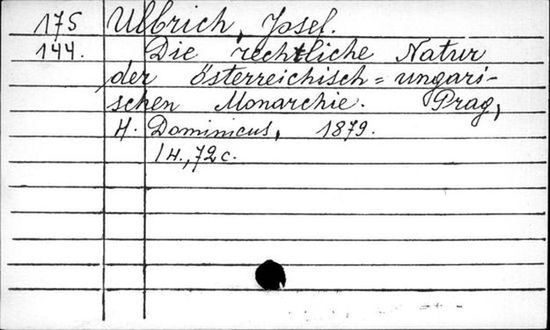 175 Ulbrich, Josef.
144. Die rechtliche Natur
der österreichisch=ungari-
schen Monarchie. Prag,
H. Dominicus, 1879.
1 H., 72 c.